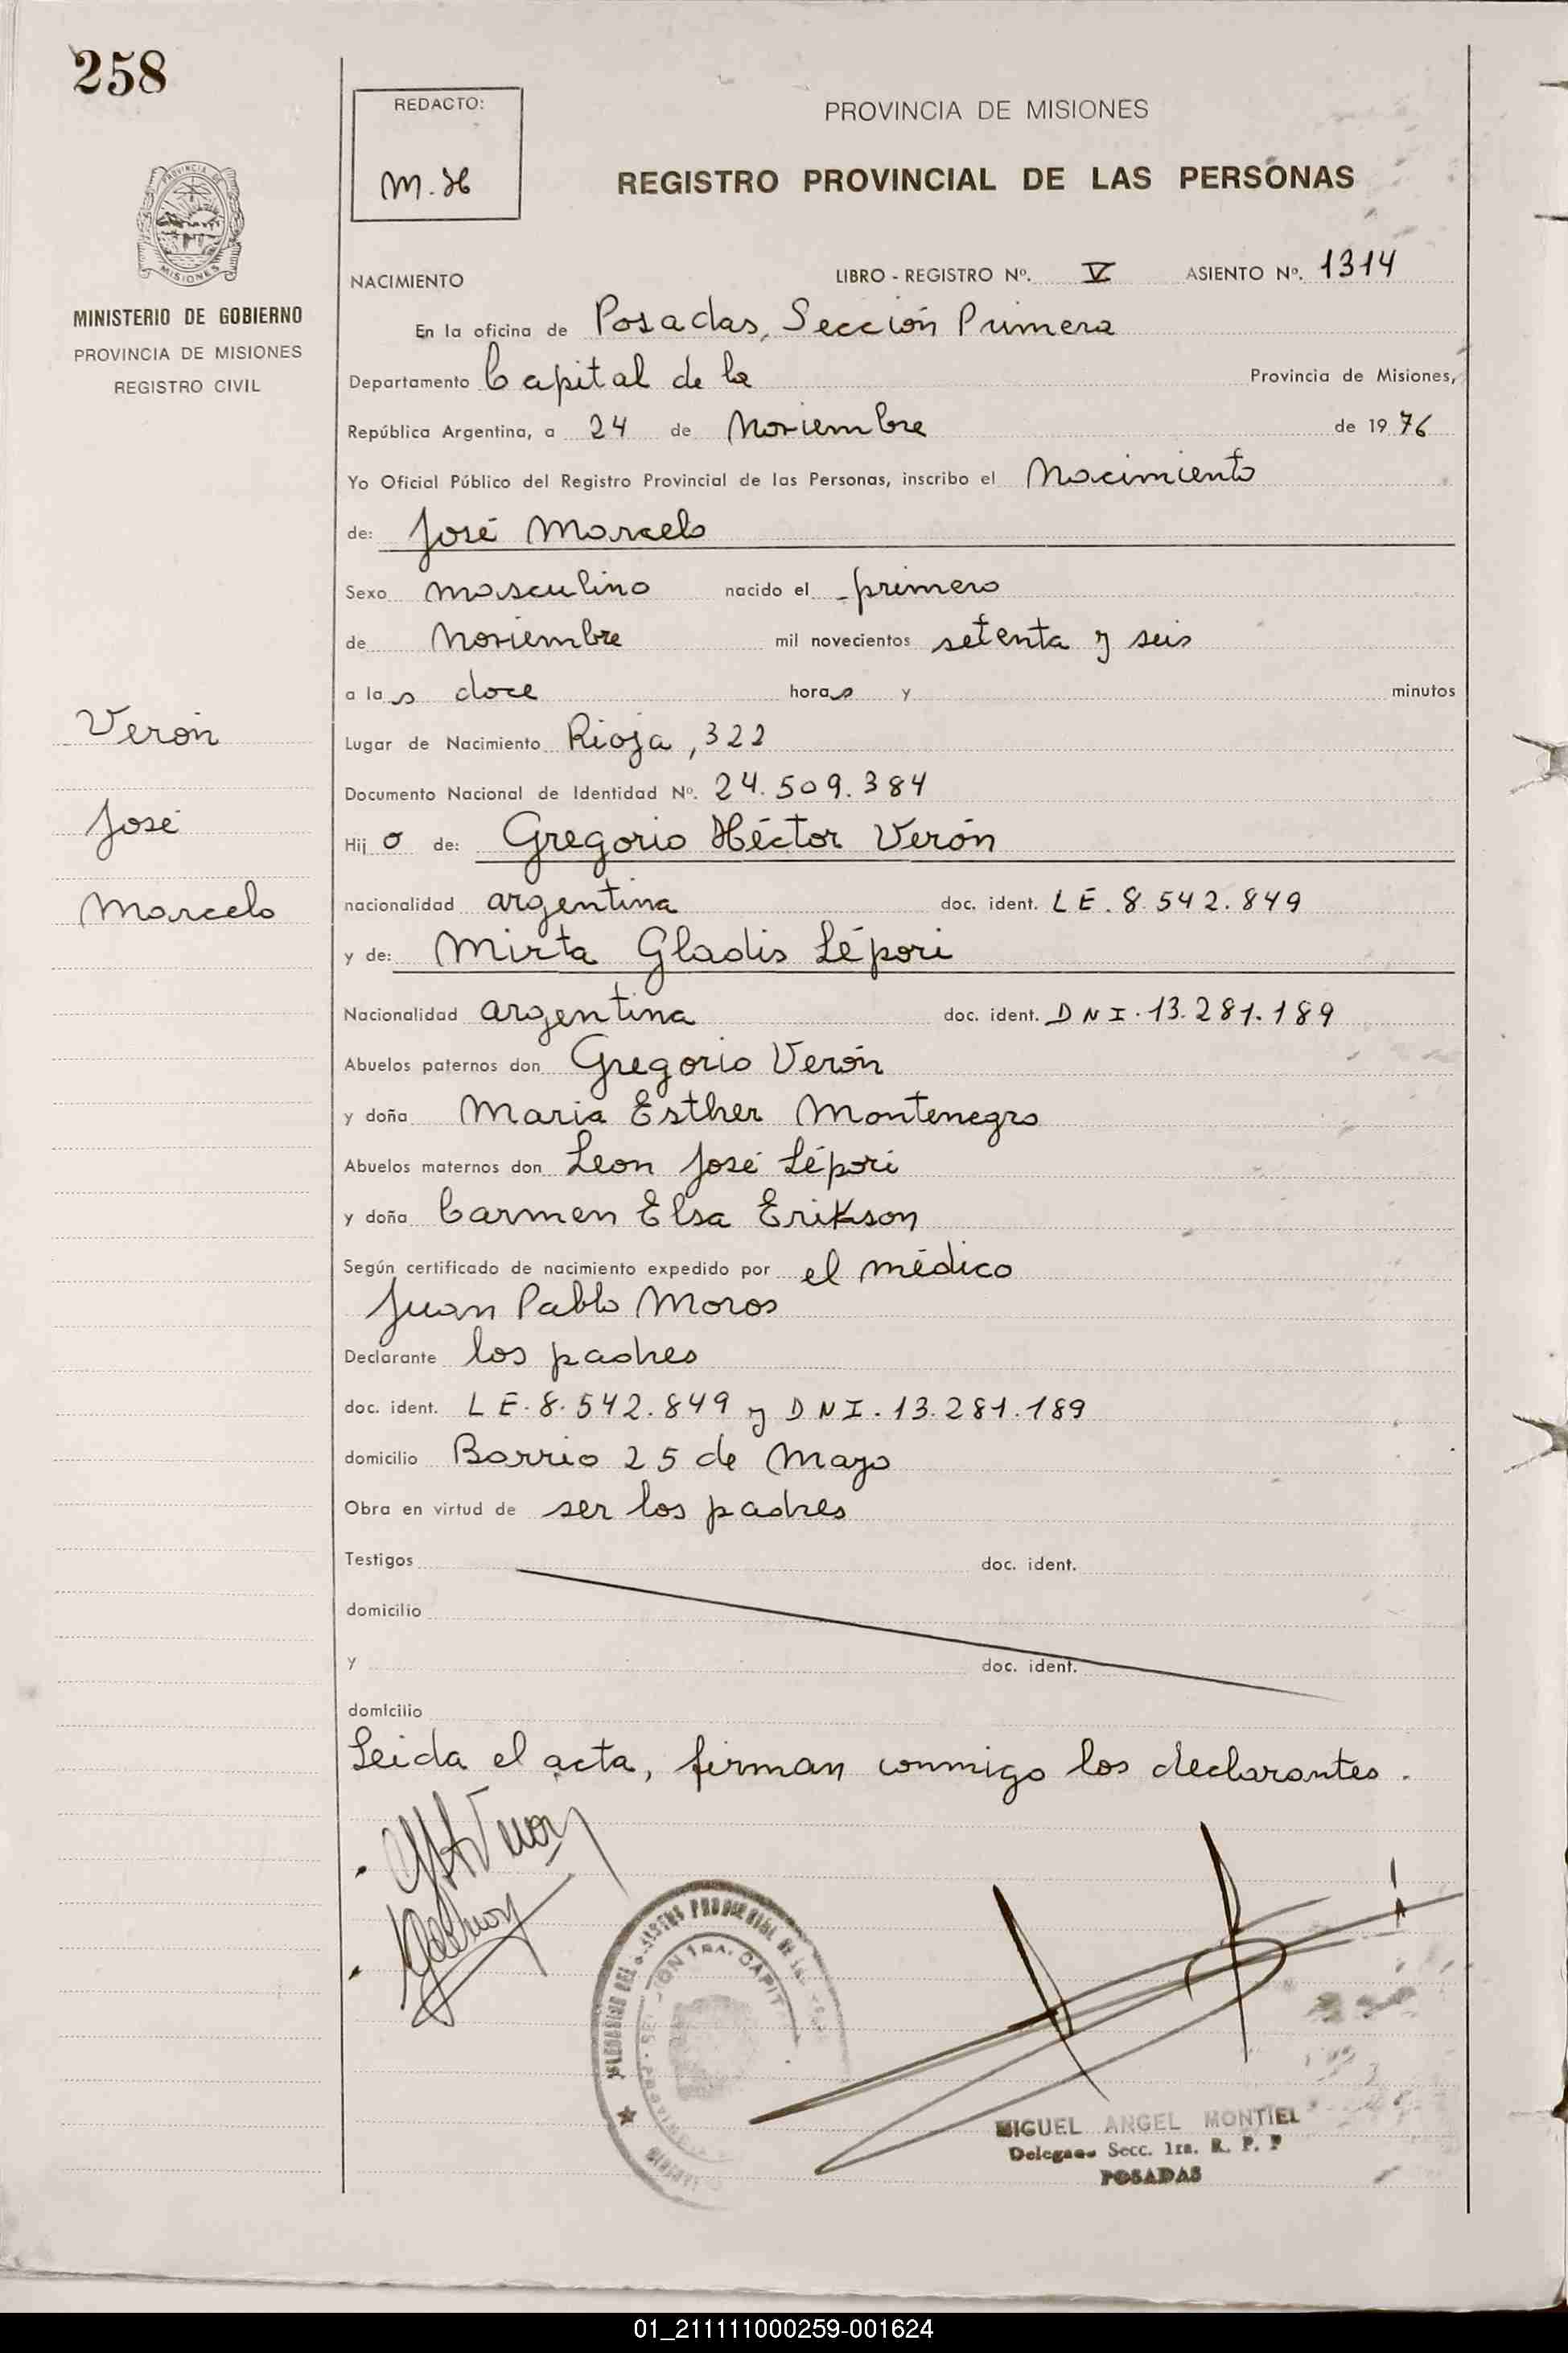 258
REDACTO:
M.H
PROVINCIA DE MISIONES
REGISTRO PROVINCIAL DE LAS PERSONAS
PROVINCIA DE
MISIONES
MINISTERIO DE GOBIERNO
PROVINCIA DE MISIONES
REGISTRO CIVIL
NACIMIENTO LIBRO - REGISTRO Nº. V ASIENTO Nº. 1314
En la oficina de Posadas, Sección Primera
Departamento Capital de la Provincia de Misiones,
República Argentina, a 24 de Noviembre de 1976
Yo Oficial Público del Registro Provincial de las Personas, inscribo el Nacimiento
de: José Marcelo
Sexo masculino nacido el primero
de Noviembre mil novecientos setenta y seis
a las doce horas y minutos
Lugar de Nacimiento Rioja, 322
Documento Nacional de Identidad Nº. 24.509.384
Hijo de: Gregorio Héctor Verón
nacionalidad argentina doc. ident. LE. 8.542.849
y de: Mirta Gladis Lépori
Nacionalidad argentina doc. ident. DNI. 13.281.189
Abuelos paternos don Gregorio Verón
y doña Maria Esther Montenegro
Abuelos maternos don Leon José Lépori
y doña Carmen Elsa Erikson
Según certificado de nacimiento expedido por el médico
Juan Pablo Moros
Declarante los padres
doc. ident. LE. 8.542.849 y DNI. 13.281.189
domicilio Barrio 25 de Mayo
Obra en virtud de ser los padres
Testigos doc. ident.
domicilio
y doc. ident.
domicilio
Leida el acta, firman conmigo los declarantes.
Verón
José
Marcelo
MIGUEL ANGEL MONTIEL
Delegado Secc. 1ra. R. P. P
POSADAS
01_211111000259-001624